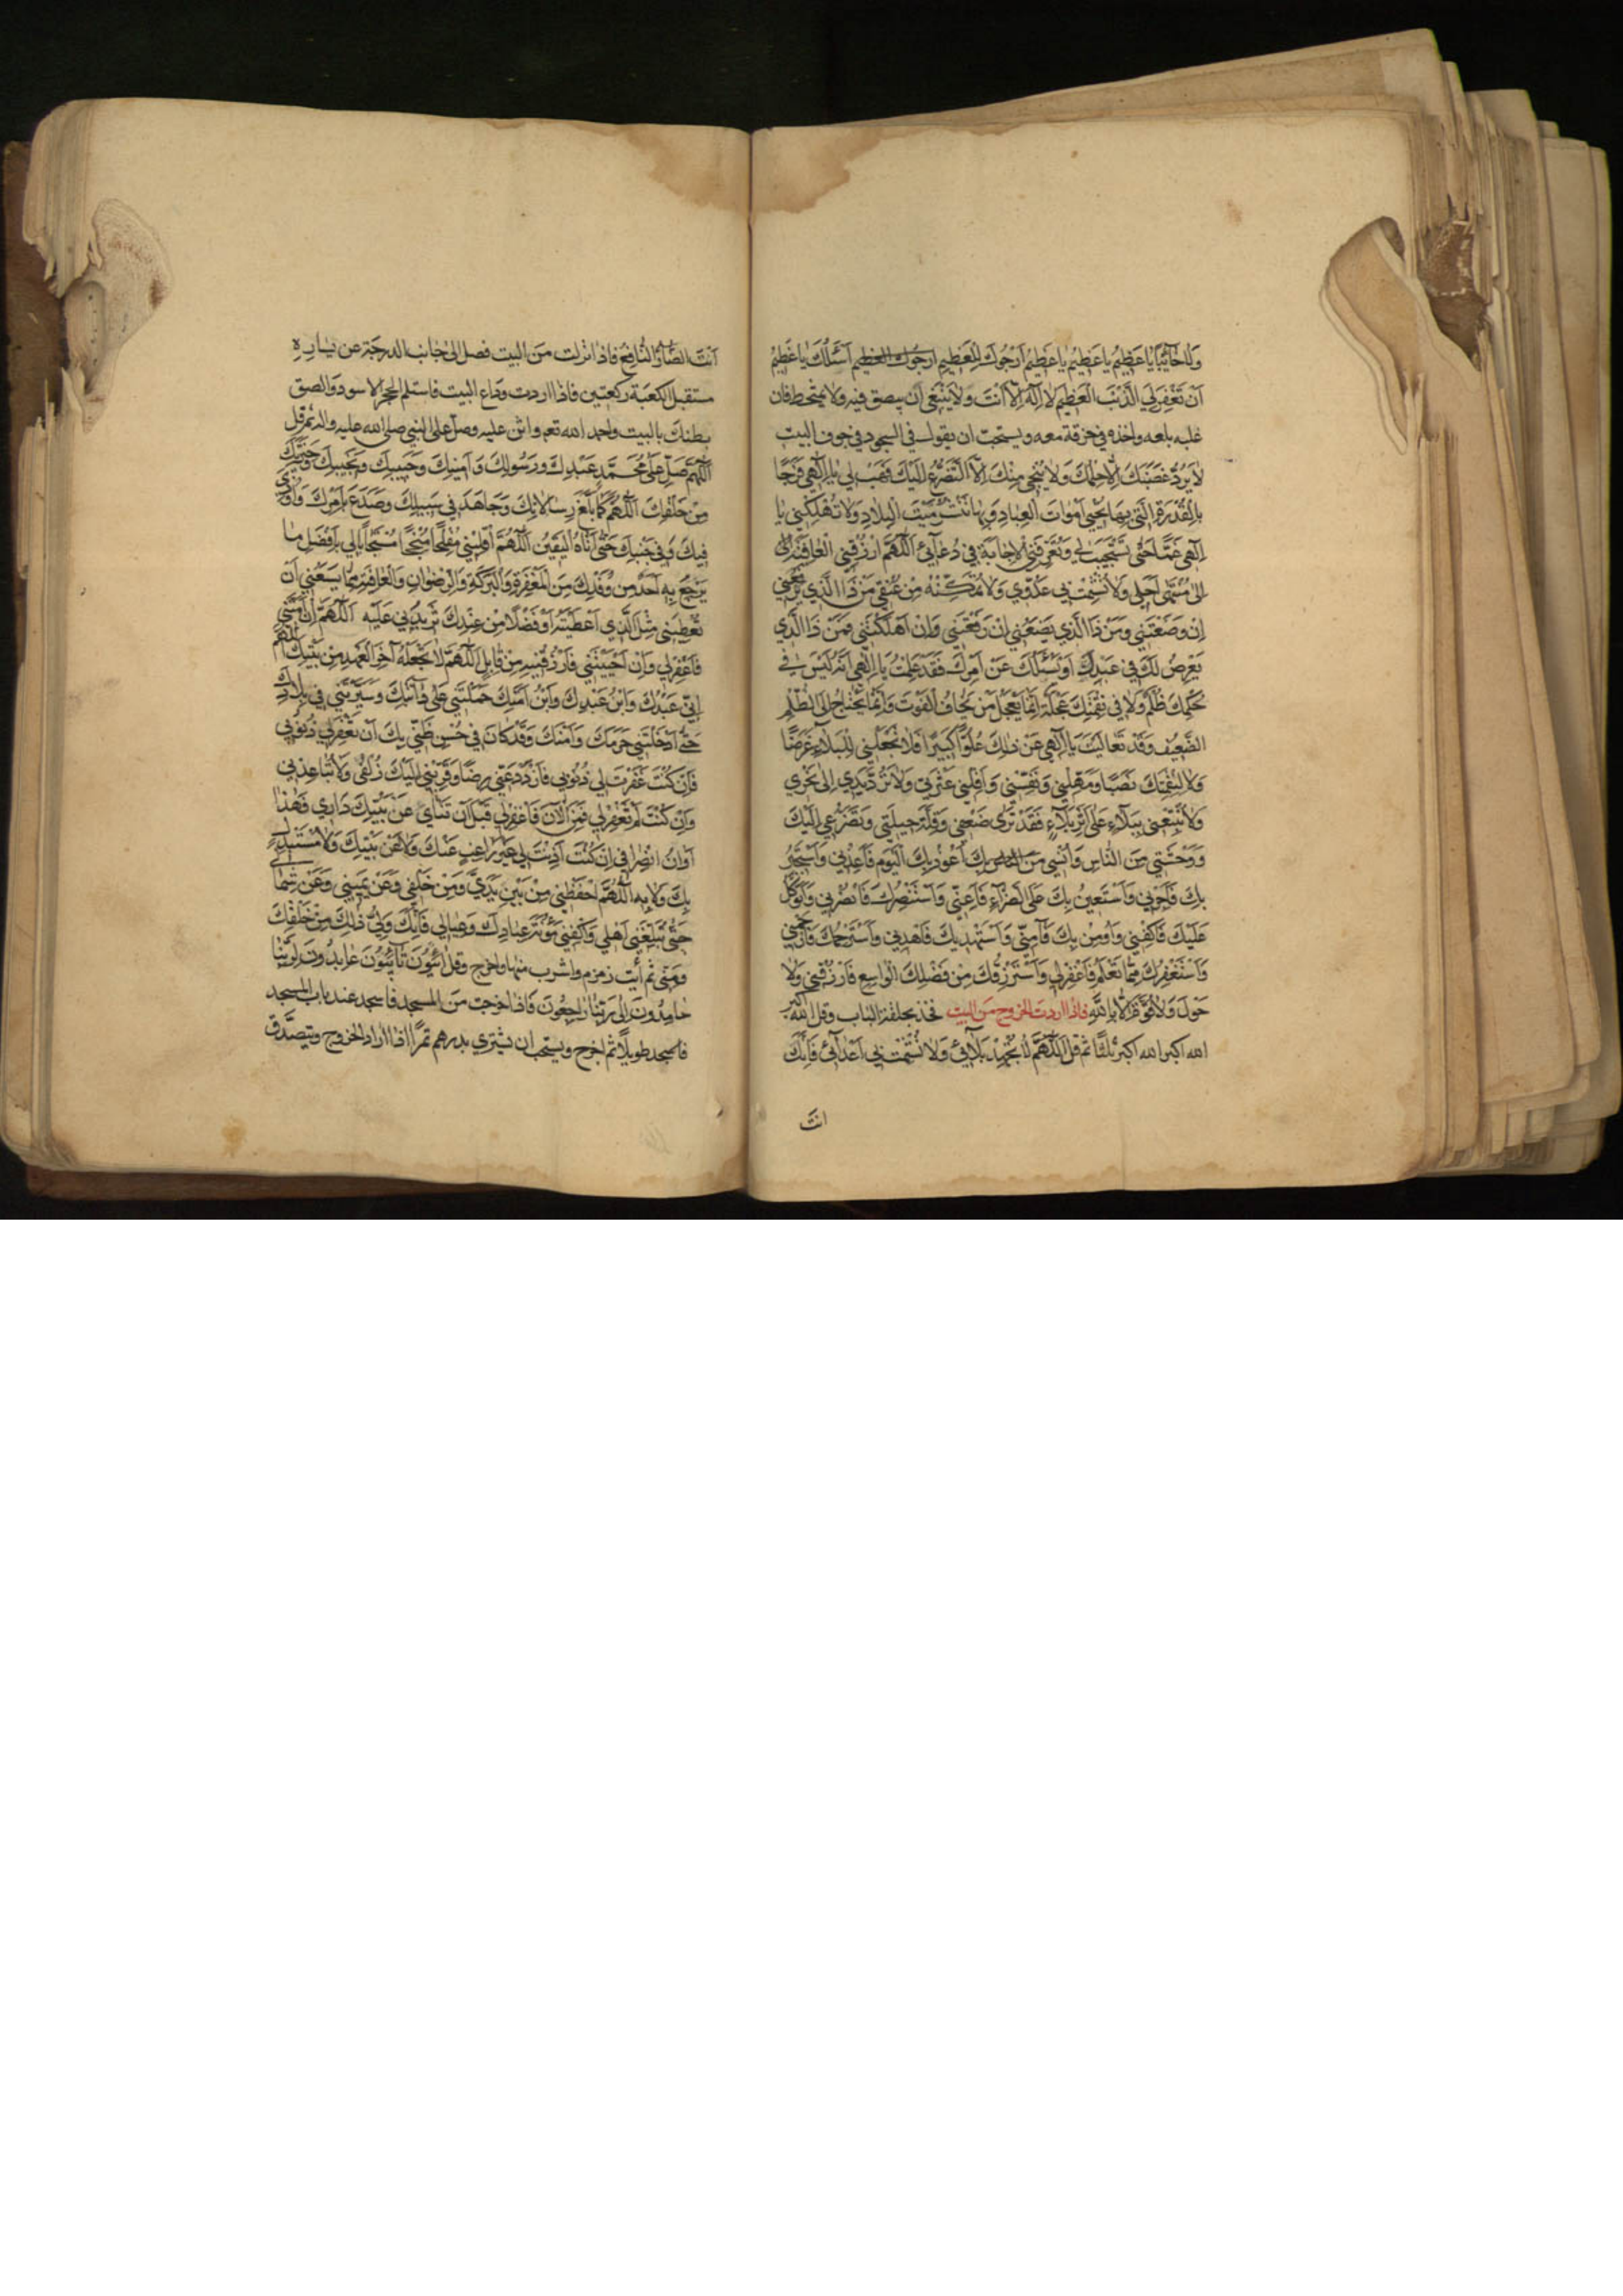 وَلَا خَائِبًا يَا عَظِيمُ يَا عَظِيمُ يَا عَظِيمُ اَرْجُوكَ لِلْعَظِيمِ اَرجُوكَ العَظيم اَسْئَلُكَ يَا عَظِيمُ
اَنْ تَغْفِرَ لِيَ الذَّنْبَ الْعَظِيمَ لَا اِلٰهَ اِلَّا اَنْتَ وَلَا يَنْبَغِي اَن يبصق فيه ولا يمتخط فان
غلبه بلعه واخذه في خرقة معه ويستحبّ ان يقول في السجود في جوف البيت
لَا يَرُدُّ غَضَبَكَ اِلَّا حِلْمُكَ وَلَا يُنْجِي مِنْكَ اِلَّا التَّضَرُّعُ اِلَيْكَ فَهَبْ لِي يَا اِلٰهِي فَرَجًا
بِالْقُدْرَةِ الَّتِي بِهَا تُحْيِي اَمْوَاتَ الْعِبَادِ وَبِهَا تَنْشُرُ مَيْتَ الْبِلَادِ وَلَا تُهْلِكْنِي يَا
اِلٰهِي غَمًّا حَتَّى تَسْتَجِيبَ لِي وَتُعَرِّفَنِي الْاِجَابَةَ فِي دُعَائِي اَللّٰهُمَّ ارْزُقْنِي الْعَافِيَةَ
اِلٰى مُنْتَهٰى اَجَلِي وَلَا تُشْمِتْ بِي عَدُوِّي وَلَا تُمَكِّنْهُ مِنْ عُنُقِي مَنْ ذَا الَّذِي يَرْفَعُنِي
اِنْ وَضَعْتَنِي وَمَنْ ذَا الَّذِي يَضَعُنِي اِنْ رَفَعْتَنِي وَاِنْ اَهْلَكْتَنِي فَمَنْ ذَا الَّذِي
يَعْرِضُ لَكَ فِي عَبْدِكَ اَوْ يَسْئَلُكَ عَنْ اَمْرِكَ فَقَدْ عَلِمْتُ يَا اِلٰهِي اَنَّهُ لَيْسَ فِي
حُكْمِكَ ظُلْمٌ وَلَا فِي نَقِمَتِكَ عَجَلَةٌ اِنَّمَا يَعْجَلُ مَنْ يَخَافُ الْفَوْتَ وَاِنَّمَا يَحْتَاجُ اِلَى الظُّلْمِ
الضَّعِيفُ وَقَدْ تَعَالَيْتَ يَا اِلٰهِي عَنْ ذٰلِكَ عُلُوًّا كَبِيرًا فَلَا تَجْعَلْنِي لِلْبَلَاءِ غَرَضًا
وَلَا لِنَقِمَتِكَ نَصَبًا وَمَهِّلْنِي وَنَفِّسْنِي وَاَقِلْنِي عَثْرَتِي وَلَا تَرُدَّ يَدِي اِلٰى نَحْرِي
وَلَا تُتْبِعْنِي بِبَلَاءٍ عَلٰى اَثَرِ بَلَاءٍ فَقَدْ تَرٰى ضَعْفِي وَقِلَّةَ حِيلَتِي وَتَضَرُّعِي اِلَيْكَ
وَوَحْشَتِي مِنَ النَّاسِ وَاُنْسِي بِكَ اَعُوذُ بِكَ الْيَوْمَ فَاَعِذْنِي وَاَسْتَجِيرُ
بِكَ فَاَجِرْنِي وَاَسْتَعِينُ بِكَ عَلَى الضَّرَّاءِ فَاَعِنِّي وَاَسْتَنْصِرُكَ فَانْصُرْنِي وَاَتَوَكَّلُ
عَلَيْكَ فَاكْفِنِي وَاُومِنُ بِكَ فَآمِنِّي وَاَسْتَهْدِيكَ فَاهْدِنِي وَاَسْتَرْحِمُكَ فَارْحَمْنِي
وَاَسْتَغْفِرُكَ مِمَّا تَعْلَمُ فَاغْفِرْ لِي وَاَسْتَرْزِقُكَ مِنْ فَضْلِكَ الْوَاسِعِ فَارْزُقْنِي وَلَا
حَوْلَ وَلَا قُوَّةَ اِلَّا بِاللّٰهِ فاذا اردت الخروج من البيت فخذ بحلقة الباب وقل الله اكبر
الله اكبر الله اكبر ثلثا ثم قل اَللّٰهُمَّ لَا تُجْهِدْ بَلَائِي وَلَا تُشْمِتْ بِي اَعْدَائِي فَاِنَّكَ
انتَ
اَنْتَ الضَّارُّ النَّافِعُ فاذا نزلت من البيت فصل الى جانب الدرجة عن يساره
مستقبل الكعبة ركعتين فاذا اردت وداع البيت فاستلم الحجر الاسود والصق
بطنك بالبيت واحمد الله تعم واثن عليه وصلّ على النبي صلى الله عليه واله ثم قل
اَللّٰهُمَّ صَلِّ عَلٰى مُحَمَّدٍ عَبْدِكَ وَرَسُولِكَ وَاَمِينِكَ وَحَبِيبِكَ وَنَجِيبِكَ وَخِيَرَتِكَ
مِنْ خَلْقِكَ اَللّٰهُمَّ كَمَا بَلَّغَ رِسَالَاتِكَ وَجَاهَدَ فِي سَبِيلِكَ وَصَدَعَ بِاَمْرِكَ وَاُوذِيَ
فِيكَ وَفِي جَنْبِكَ حَتّٰى اَتَاهُ الْيَقِينُ اَللّٰهُمَّ اقْلِبْنِي مُفْلِحًا مُنْجِحًا مُسْتَجَابًا لِي بِاَفْضَلِ مَا
يَرْجِعُ بِهِ اَحَدٌ مِنْ وَفْدِكَ مِنَ الْمَغْفِرَةِ وَالْبَرَكَةِ وَالرِّضْوَانِ وَالْعَافِيَةِ مِمَّا يَسَعُنِي اَنْ
تُعْطِيَنِي مِثْلَ الَّذِي اَعْطَيْتَهُ اَوْ فَضْلًا مِنْ عِنْدِكَ تَزِيدُنِي عَلَيْهِ اَللّٰهُمَّ اِنْ اَمَتَّنِي
فَاغْفِرْ لِي وَاِنْ اَحْيَيْتَنِي فَارْزُقْنِيهِ مِنْ قَابِلٍ اَللّٰهُمَّ لَا تَجْعَلْهُ آخِرَ الْعَهْدِ مِنْ بَيْتِكَ اللّٰهُمَّ
اِنِّي عَبْدُكَ وَابْنُ عَبْدِكَ وَابْنُ اَمَتِكَ حَمَلْتَنِي عَلٰى دَابَّتِكَ وَسَيَّرْتَنِي فِي بِلَادِكَ
حَتّٰى اَدْخَلْتَنِي حَرَمَكَ وَاَمْنَكَ وَقَدْ كَانَ فِي حُسْنِ ظَنِّي بِكَ اَنْ تَغْفِرَ لِي ذُنُوبِي
فَاِنْ كُنْتَ غَفَرْتَ لِي ذُنُوبِي فَازْدَدْ عَنِّي رِضًا وَقَرِّبْنِي اِلَيْكَ زُلْفٰى وَلَا تُبَاعِدْنِي
وَاِنْ كُنْتَ لَمْ تَغْفِرْ لِي فَمِنَ الْآنَ فَاغْفِرْ لِي قَبْلَ اَنْ تَنْاٰى عَنْ بَيْتِكَ دَارِي فَهٰذَا
اَوَانُ انْصِرَافِي اِنْ كُنْتَ اَذِنْتَ لِي غَيْرَ رَاغِبٍ عَنْكَ وَلَا عَنْ بَيْتِكَ وَلَا مُسْتَبْدِلٍ
بِكَ وَلَا بِهِ اَللّٰهُمَّ احْفَظْنِي مِنْ بَيْنِ يَدَيَّ وَمِنْ خَلْفِي وَعَنْ يَمِينِي وَعَنْ شِمَالِي
حَتّٰى تُبَلِّغَنِي اَهْلِي وَاكْفِنِي مَؤُنَةَ عِبَادِكَ وَعِيَالِي فَاِنَّكَ وَلِيُّ ذٰلِكَ مِنْ خَلْقِكَ
وَمِنِّي ثم أيت زمزم واشرب منها واخرج وقل آئِبُونَ تَائِبُونَ عَابِدُونَ لِرَبِّنَا
حَامِدُونَ اِلٰى رَبِّنَا رَاجِعُونَ فاذا خرجت من المسجد فاسجد عند باب المسجد
فاسجد طويلًا ثم اخرج ويستحب ان يشتري بدرهم تمرًا اذا اراد الخروج ويتصدّق